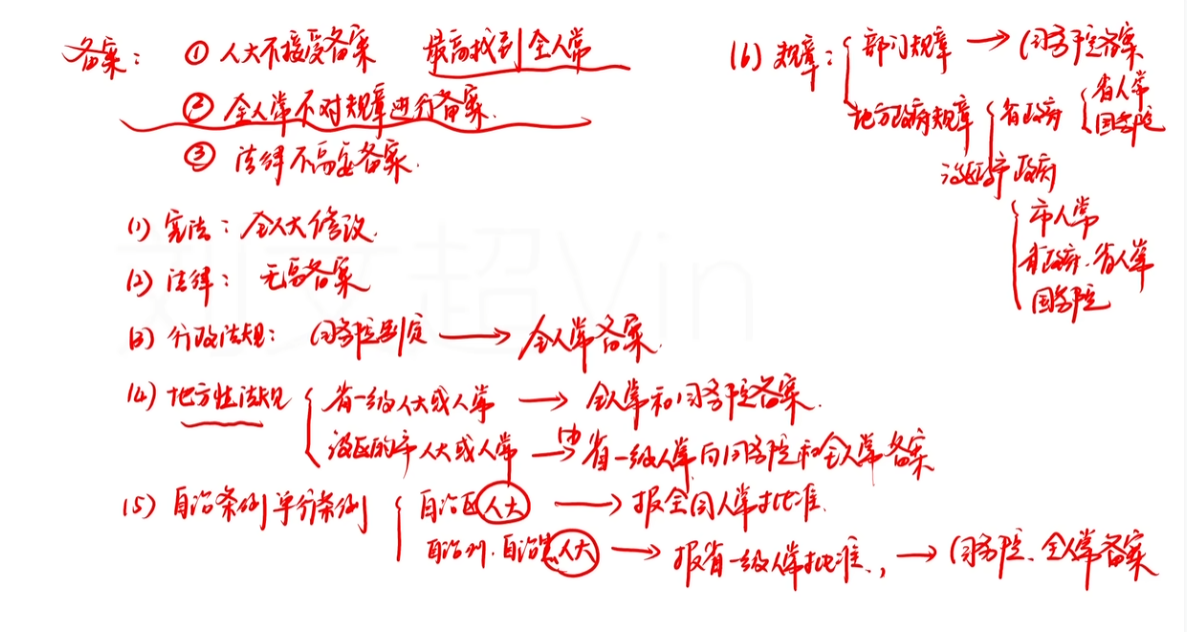 备案: ① 人大不接受备案 最高找到全人常
② 全人常不对规章进行备案.
③ 法律不需要备案.
(1) 宪法: 全人大修改.
(2) 法律: 无需备案
(3) 行政法规: 国务院制定 → 全人常备案.
(4) 地方性法规
省一级人大或人常 → 全人常和国务院备案.
设区的市人大或人常 → 由省一级人常向国务院和全人常备案
(5) 自治条例单行条例
自治区人大 → 报全国人常批准.
自治州、自治县人大 → 报省一级人常批准, → 国务院、全人常备案
(6) 规章:
部门规章 → 国务院备案
地方政府规章
省政府
省人常
国务院
设区的市政府
市人常
省政府、省人常
国务院
刘文超Vin